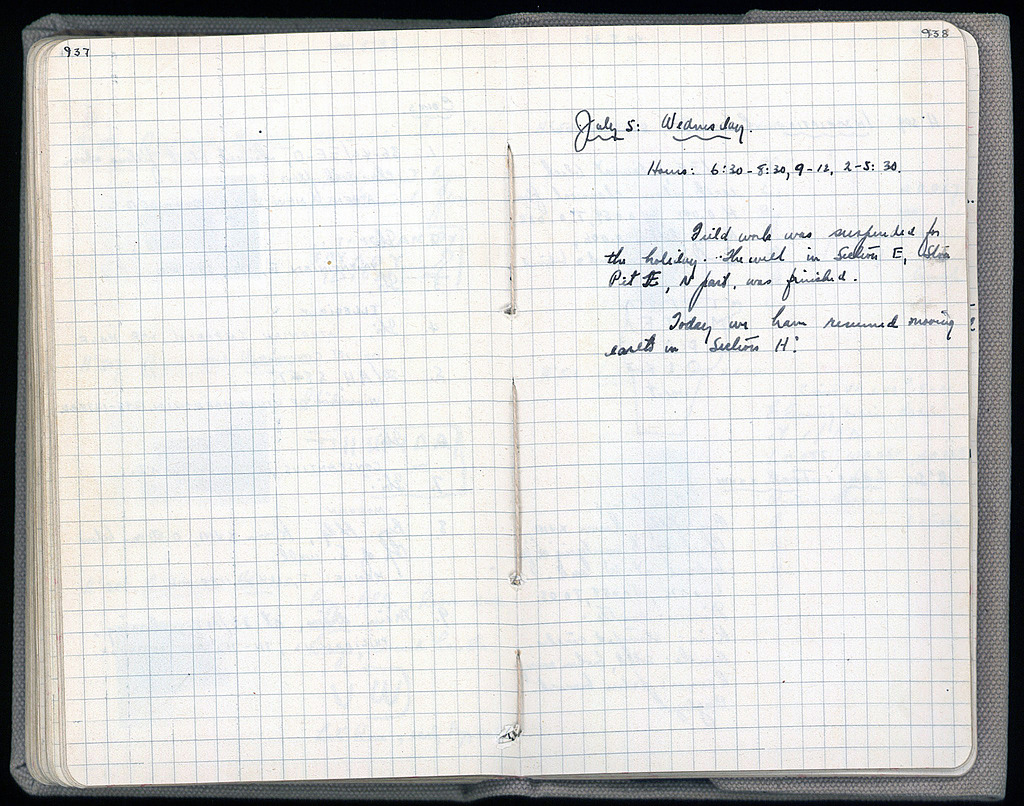 937
938
July 5: Wednesday.
Hours: 6:30-8:30, 9-12, 2-5:30.
Field work was suspended for
the holiday. The well in Section E, Stoa
Pit E, N part, was finished.
Today we have resumed moving
earth in Section H.